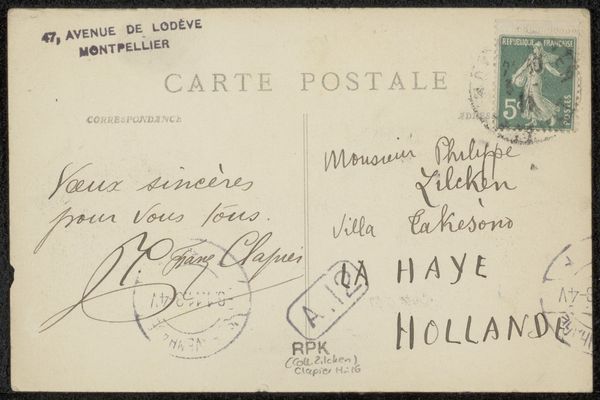 47, AVENUE DE LODÈVE
MONTPELLIER
RÉPUBLIQUE FRANÇAISE
5c
POSTES
CARTE POSTALE
CORRESPONDANCE
Monsieur Philippe
Zilcken
Villa Cakésono
LA HAYE
HOLLANDE
Vœux sincères
pour vous tous.
Clapier
A.12
RPK
(Coll. Zilcken)